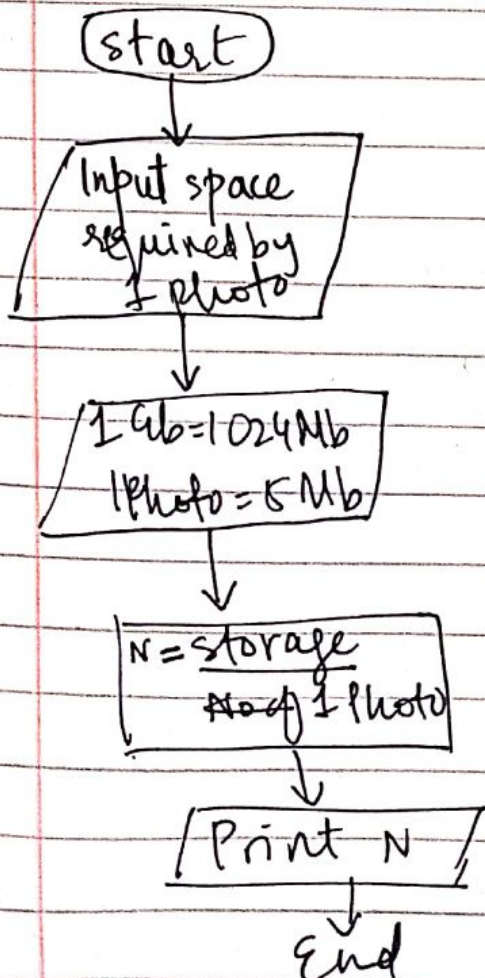 start
Input space
required by
1 photo
1 Gb=1024Mb
1Photo = 5 Mb
N = storage
1 Photo
Print N
End